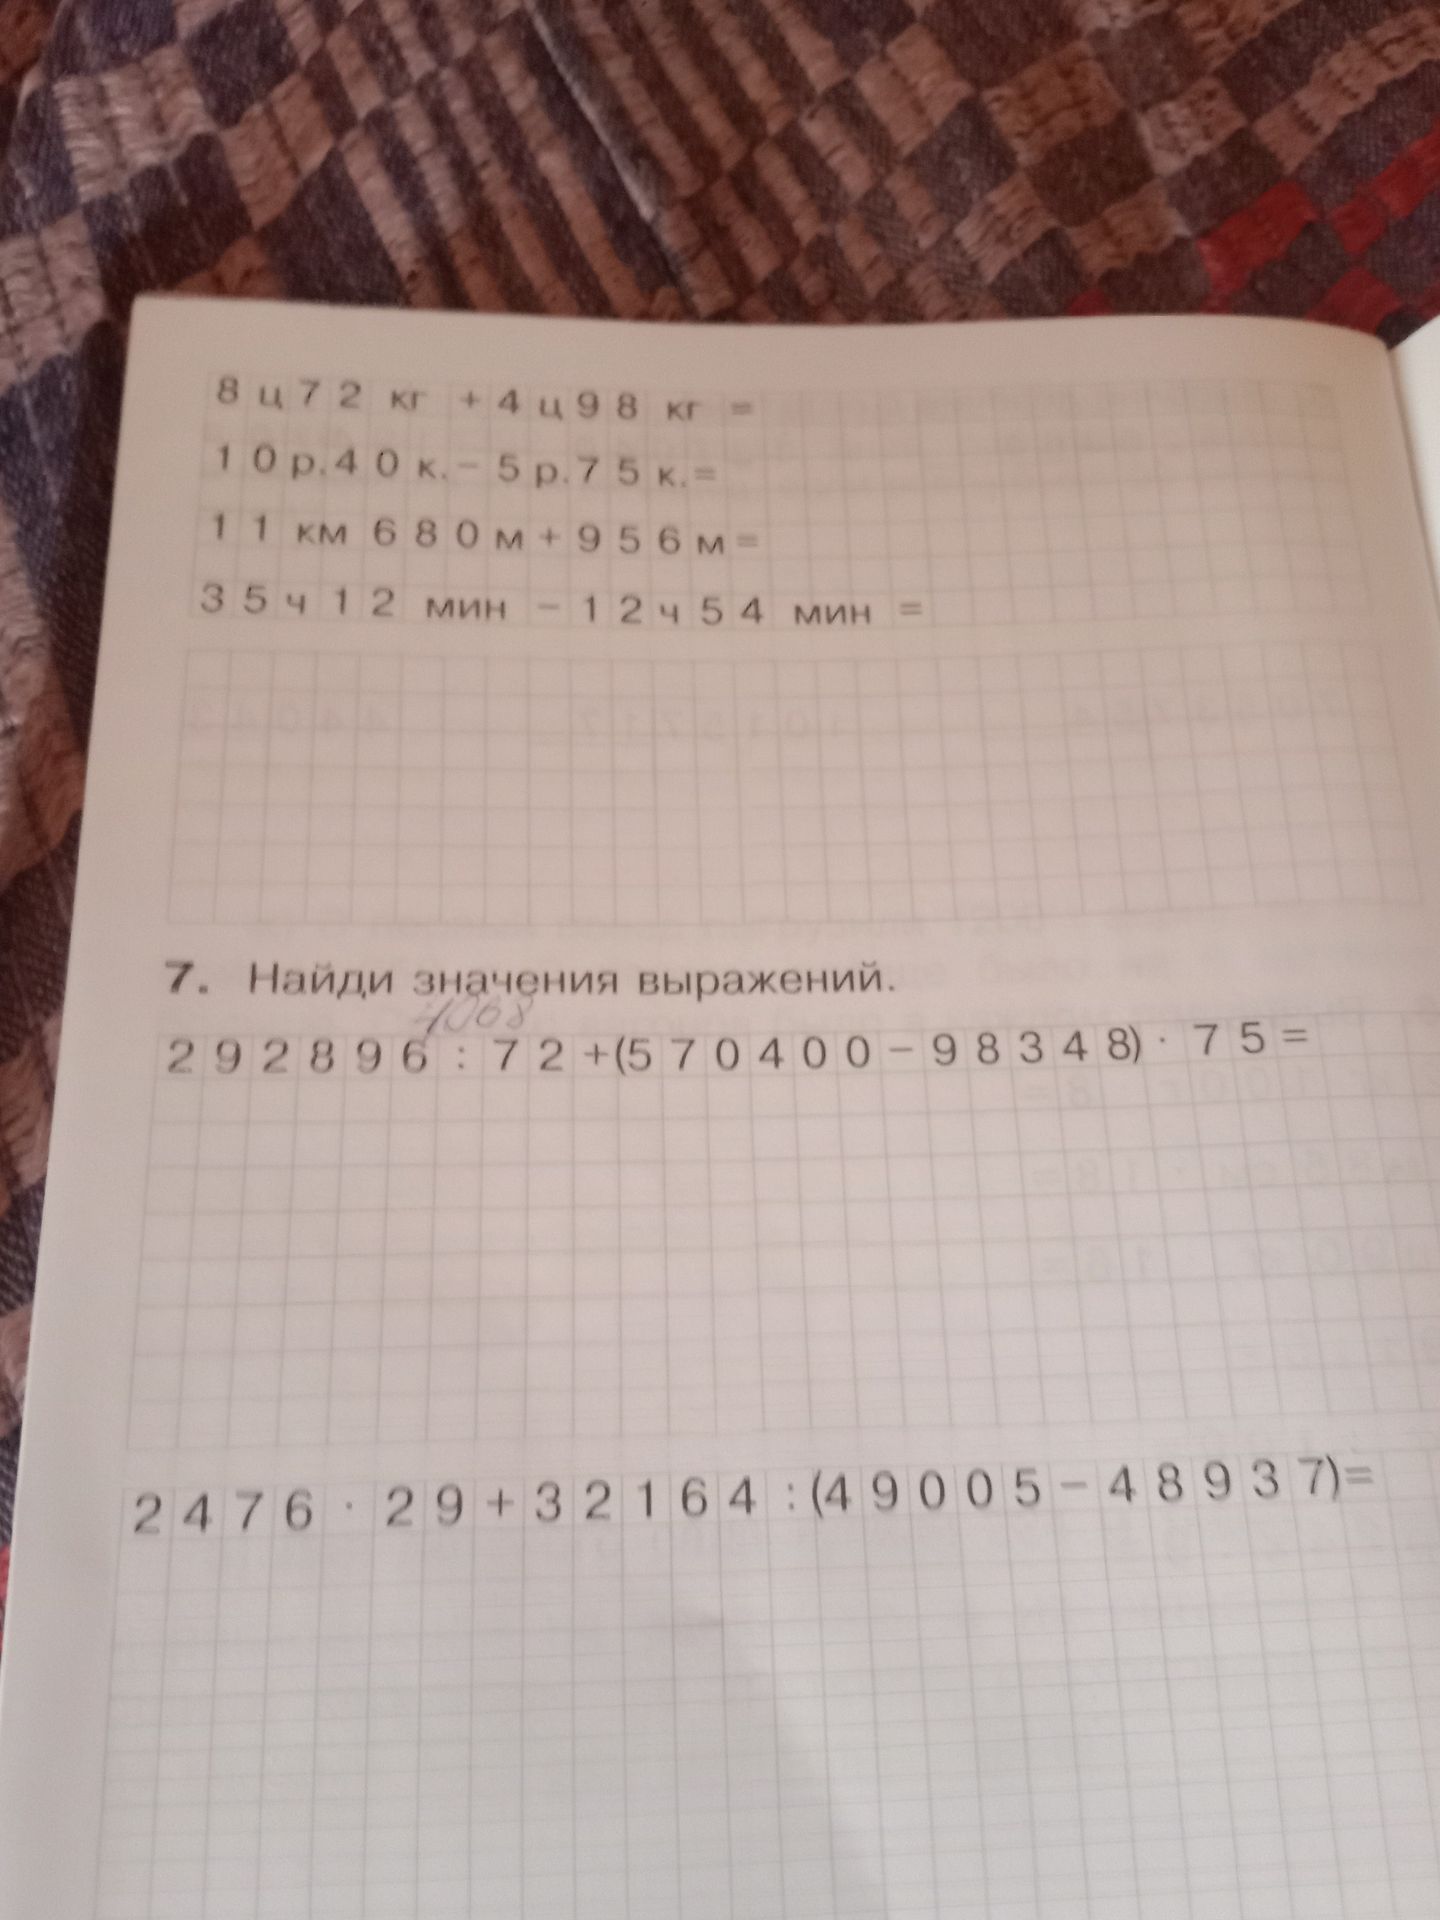 8 ц 72 кг + 4 ц 98 кг =
10 р. 40 к. − 5 р. 75 к. =
11 км 680 м + 956 м =
35 ч 12 мин − 12 ч 54 мин =
7. Найди значения выражений.
4068
292896 : 72 + (570400 − 98348) · 75 =
2476 · 29 + 32164 : (49005 − 48937) =